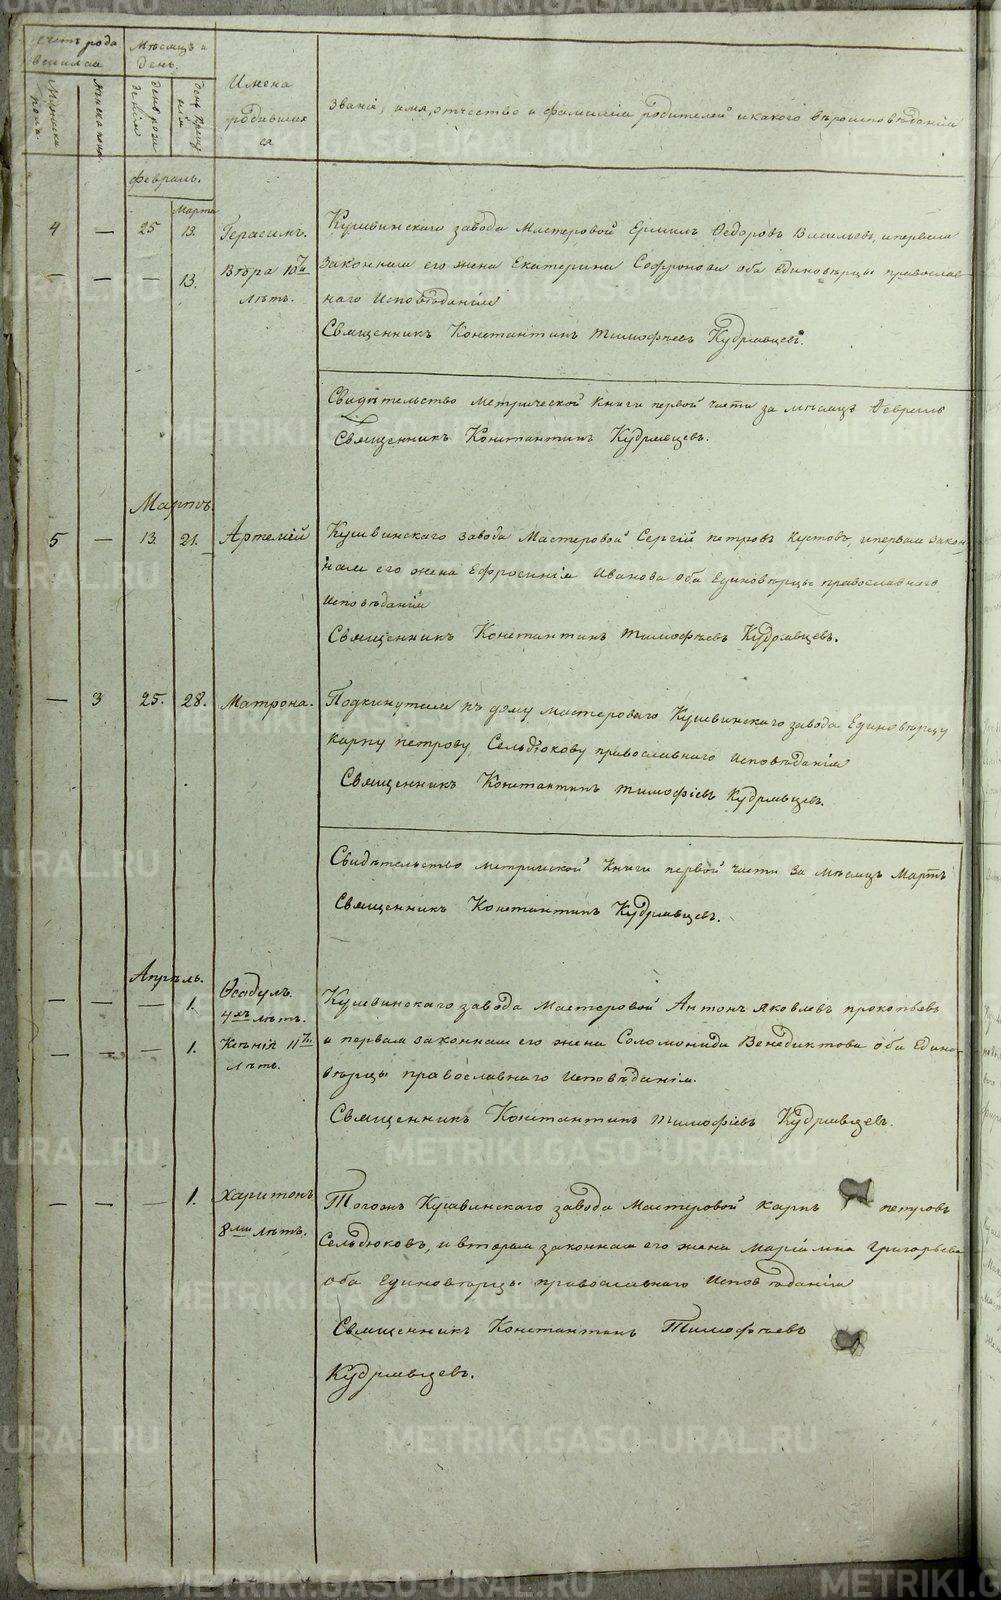 счетъ рода
Мѣсяцъ и
день.
Мужеска
пола.
женска пола.
день рож
денія
день креще
нія
Имена
родивших
ся
Званіе, имя, отчество и фамилія родителей и какого вѣроисповѣданія
февраль.
Марта
4 — 25 13. Герасимъ. Кушвинскаго завода Мастеровой Ермилъ Ѳедоровъ Васильевъ, и первая
— — — 13. Вѣра 10ти законная его жена Екатерина Софронова оба Единовѣрцы православ-
лѣтъ. наго Исповѣданія
Священникъ Константинъ Тимофѣевъ Кудрявцевъ.
Свидѣтельство метрической Книги первой части за мѣсяцъ Февраль
Священникъ Константинъ Кудрявцевъ.
Мартъ.
5 — 13. 21. Артемій Кушвинскаго завода Мастеровой Сергій петровъ Кустовъ, и первая закон-
ная его жена Ефросинія Иванова оба Единовѣрцы православнаго
исповѣданія
Священникъ Константинъ Тимофѣевъ Кудрявцевъ.
— 3 25. 28. Матрона. Подкинутая къ дому мастероваго Кушвинскаго завода Единовѣрцу
карпу петрову Сельдюкову православнаго исповѣданія
Священникъ Константинъ тимофіевъ Кудрявцевъ.
Свидѣтельство метрической Книги первой части за мѣсяцъ Мартъ
Священникъ Константинъ Кудрявцевъ.
Апрѣль.
— — — 1. Ѳеодулъ. Кушвинскаго завода Мастеровой Антонъ яковлевъ прокопьевъ
4хъ лѣтъ.
— — — 1. Ксѣнія 11ти и первая законная его жена Соломонида Венедиктова оба Едино-
лѣтъ. вѣрцы православнаго исповѣданія.
Священникъ Константинъ тимофіевъ Кудрявцевъ.
— — — 1. Харитонъ Тогожъ Кушвинскаго завода Мастеровой карпъ петровъ
8ми лѣтъ. Сельдюковъ, и вторая законная его жена Маріамна Григорьева
оба Единовѣрцы православнаго исповѣданія
Священникъ Константинъ Тимофѣевъ
Кудрявцевъ.
METRIKI.GASO-URAL.RU